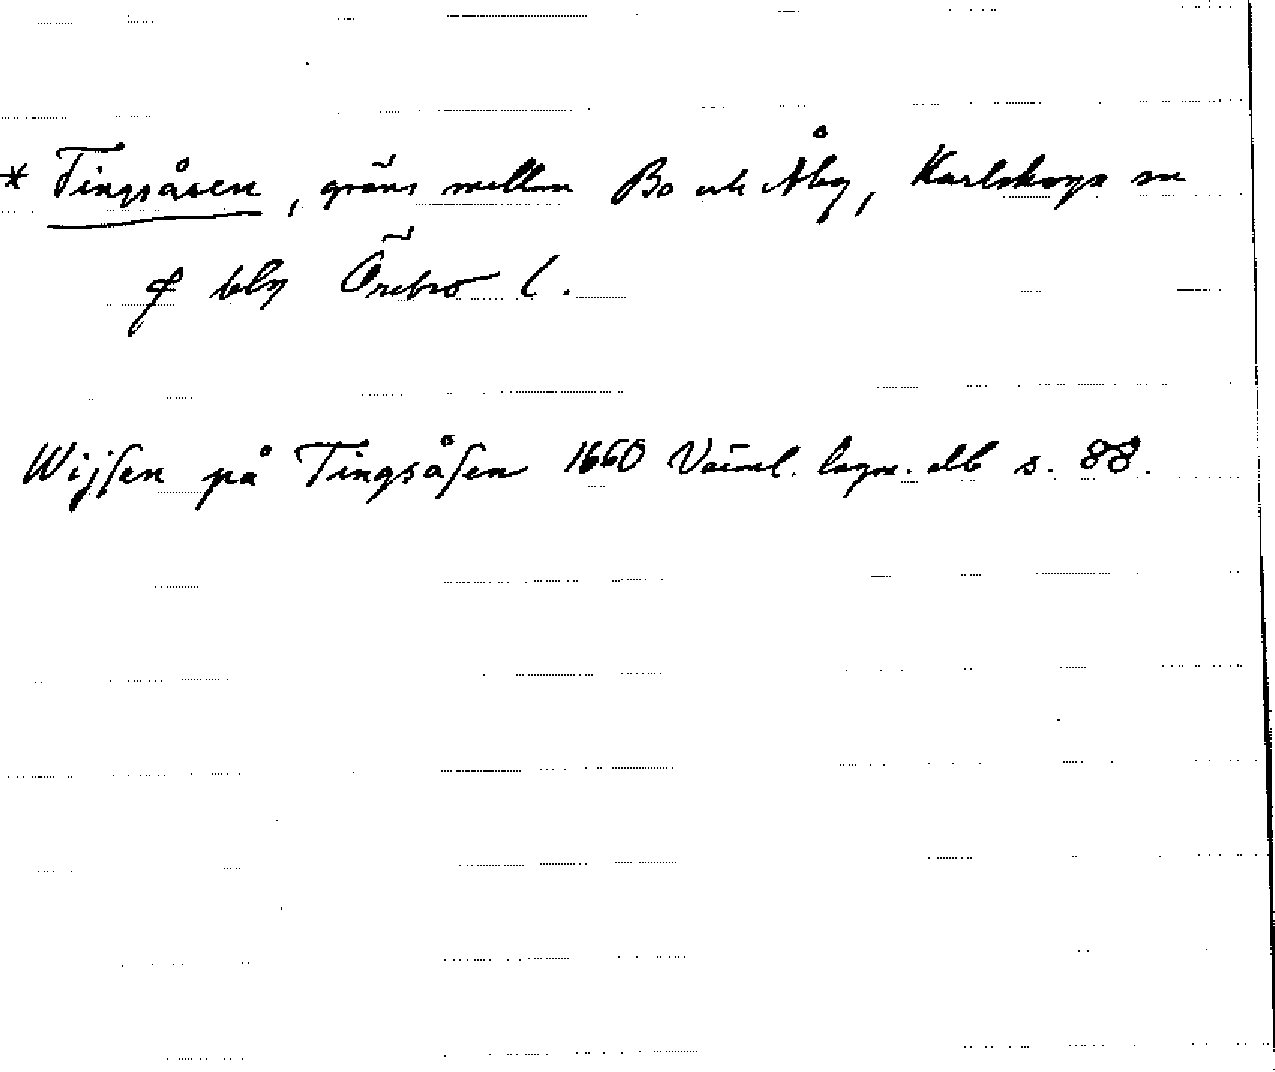 * Tingsåsen, gräns mellan Bo och Åby, Karlskoga sn
o bby Örebro l.
Wijsen på Tingsåsen 1660 Värml. lagm. dlb s. 88.